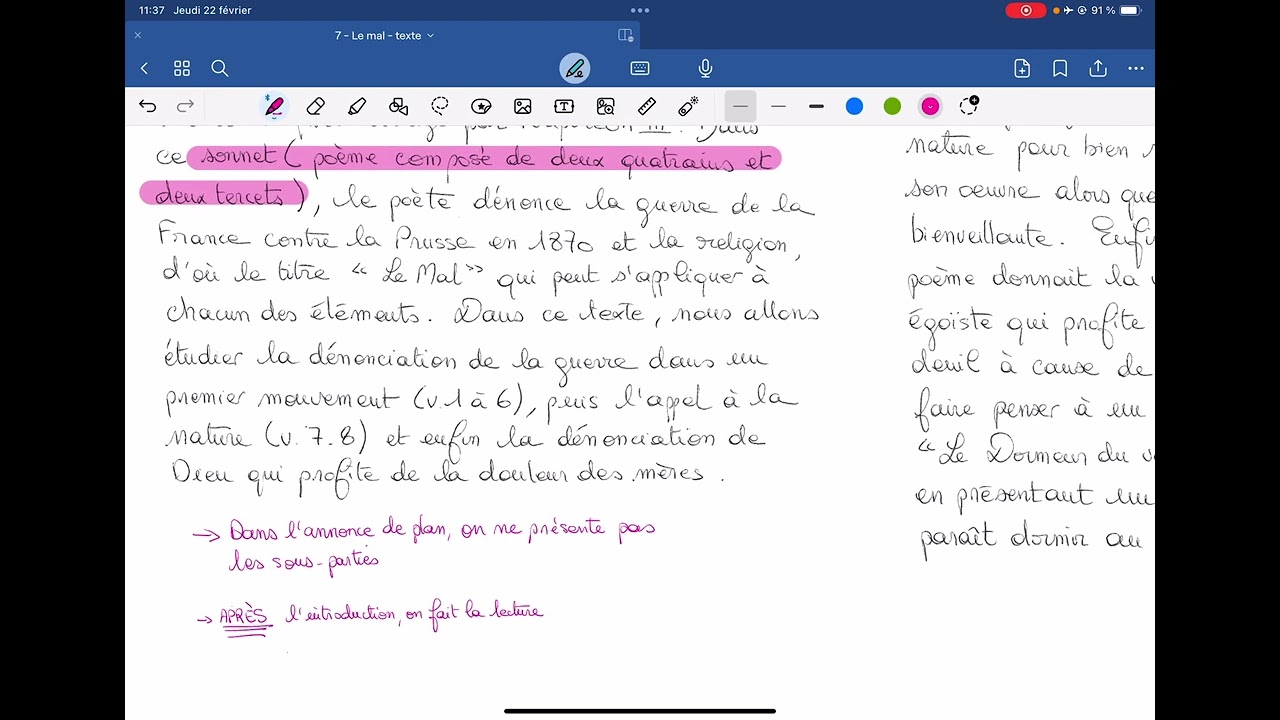 11:37 Jeudi 22 février
91 %
7 - Le mal - texte
III. Dans
ce sonnet ( poème composé de deux quatrains et
deux tercets ), le poète dénonce la guerre de la
France contre la Prusse en 1870 et la religion,
d'où le titre “ Le Mal ” qui peut s'appliquer à
chacun des éléments. Dans ce texte, nous allons
étudier la dénonciation de la guerre dans un
premier mouvement (v.1 à 6), puis l'appel à la
nature (v. 7.8) et enfin la dénonciation de
Dieu qui profite de la douleur des mères.
→ Dans l'annonce de plan, on ne présente pas
les sous-parties
→ APRÈS l'introduction, on fait la lecture
nature pour bien
son oeuvre alors que
bienveillante. Enfi
poème donnait la
égoïste qui profite
deuil à cause de
faire penser à un
“Le Dormeur du v
en présentant un
paraît dormir au